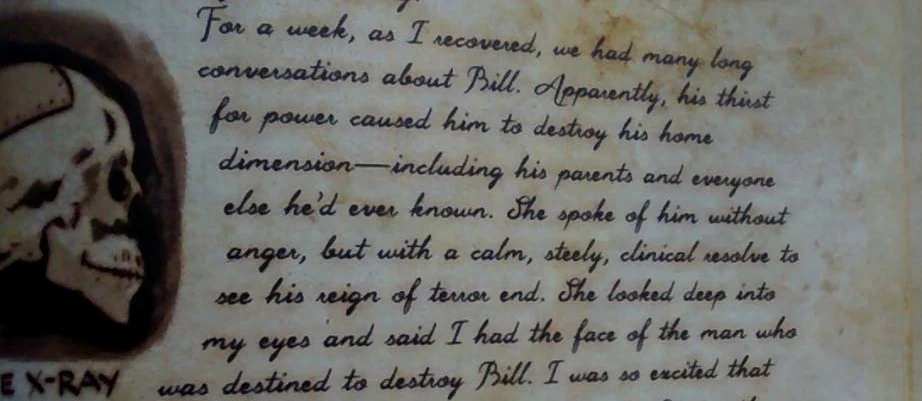 For a week, as I recovered, we had many long
conversations about Bill. Apparently, his thirst
for power caused him to destroy his home
dimension—including his parents and everyone
else he'd ever known. She spoke of him without
anger, but with a calm, steely, clinical resolve to
see his reign of terror end. She looked deep into
my eyes and said I had the face of the man who
was destined to destroy Bill. I was so excited that
E X-RAY